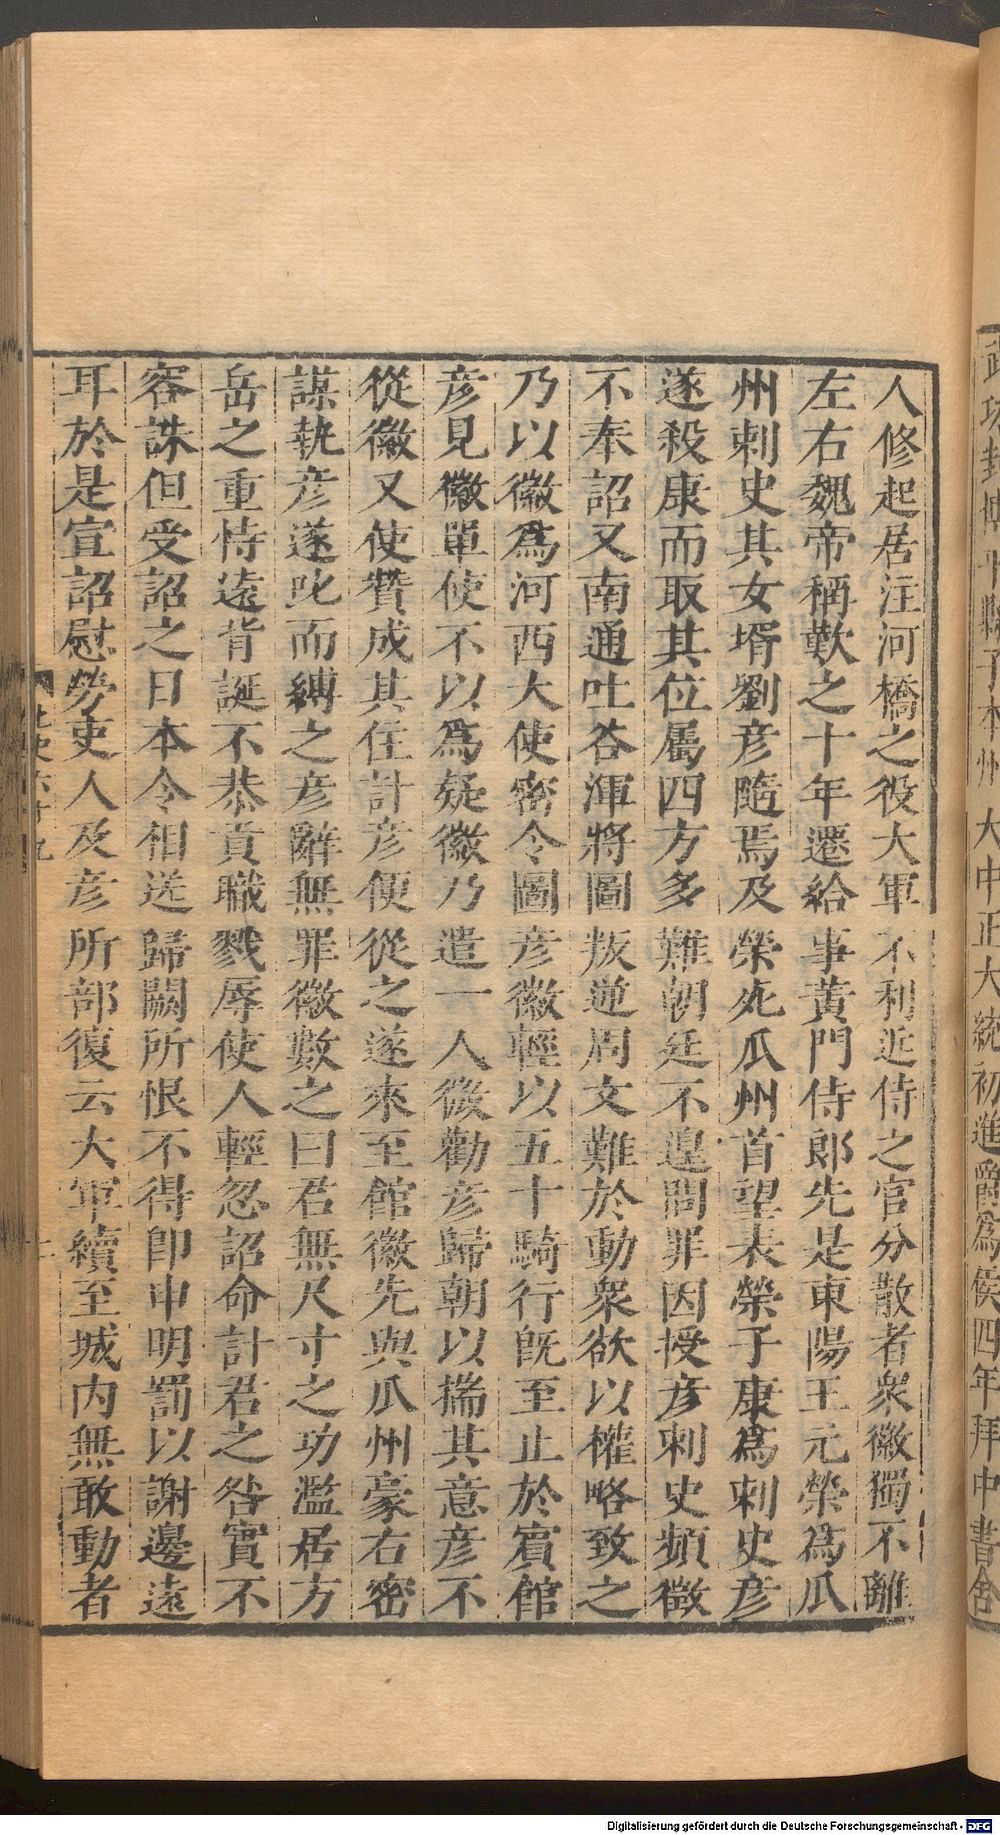 武功封 大中正大統初進爵爲侯四年拜中書舍
人修起居注河橋之役大軍不利近侍之官分散者衆徽獨不離
左右魏帝稱歎之十年遷給事黃門侍郎先是東陽王元榮爲瓜
州刺史其女壻劉彥隨焉及榮死瓜州首望表榮子康爲刺史彥
遂殺康而取其位屬四方多難朝廷不遑問罪因授彥刺史頻徵
不奉詔又南通吐谷渾將圖叛逆周文難於動衆欲以權略致之
乃以徽爲河西大使密令圖彥徽輕以五十騎行旣至止於賓館
彥見徽單使不以爲疑徽乃遣一人微勸彥歸朝以揣其意彥不
從徽又使贊成其住計彥便從之遂來至館徽先與瓜州豪右密
謀執彥遂叱而縛之彥辭無罪徽數之曰君無尺寸之功濫居方
岳之重恃遠背誕不恭貢職戮辱使人輕忽詔命計君之咎實不
容誅但受詔之日本令相送歸闕所恨不得卽申明罰以謝邊遠
耳於是宣詔慰勞吏人及彥所部復云大軍續至城內無敢動者
Digitalisierung gefördert durch die Deutsche Forschungsgemeinschaft - DFG